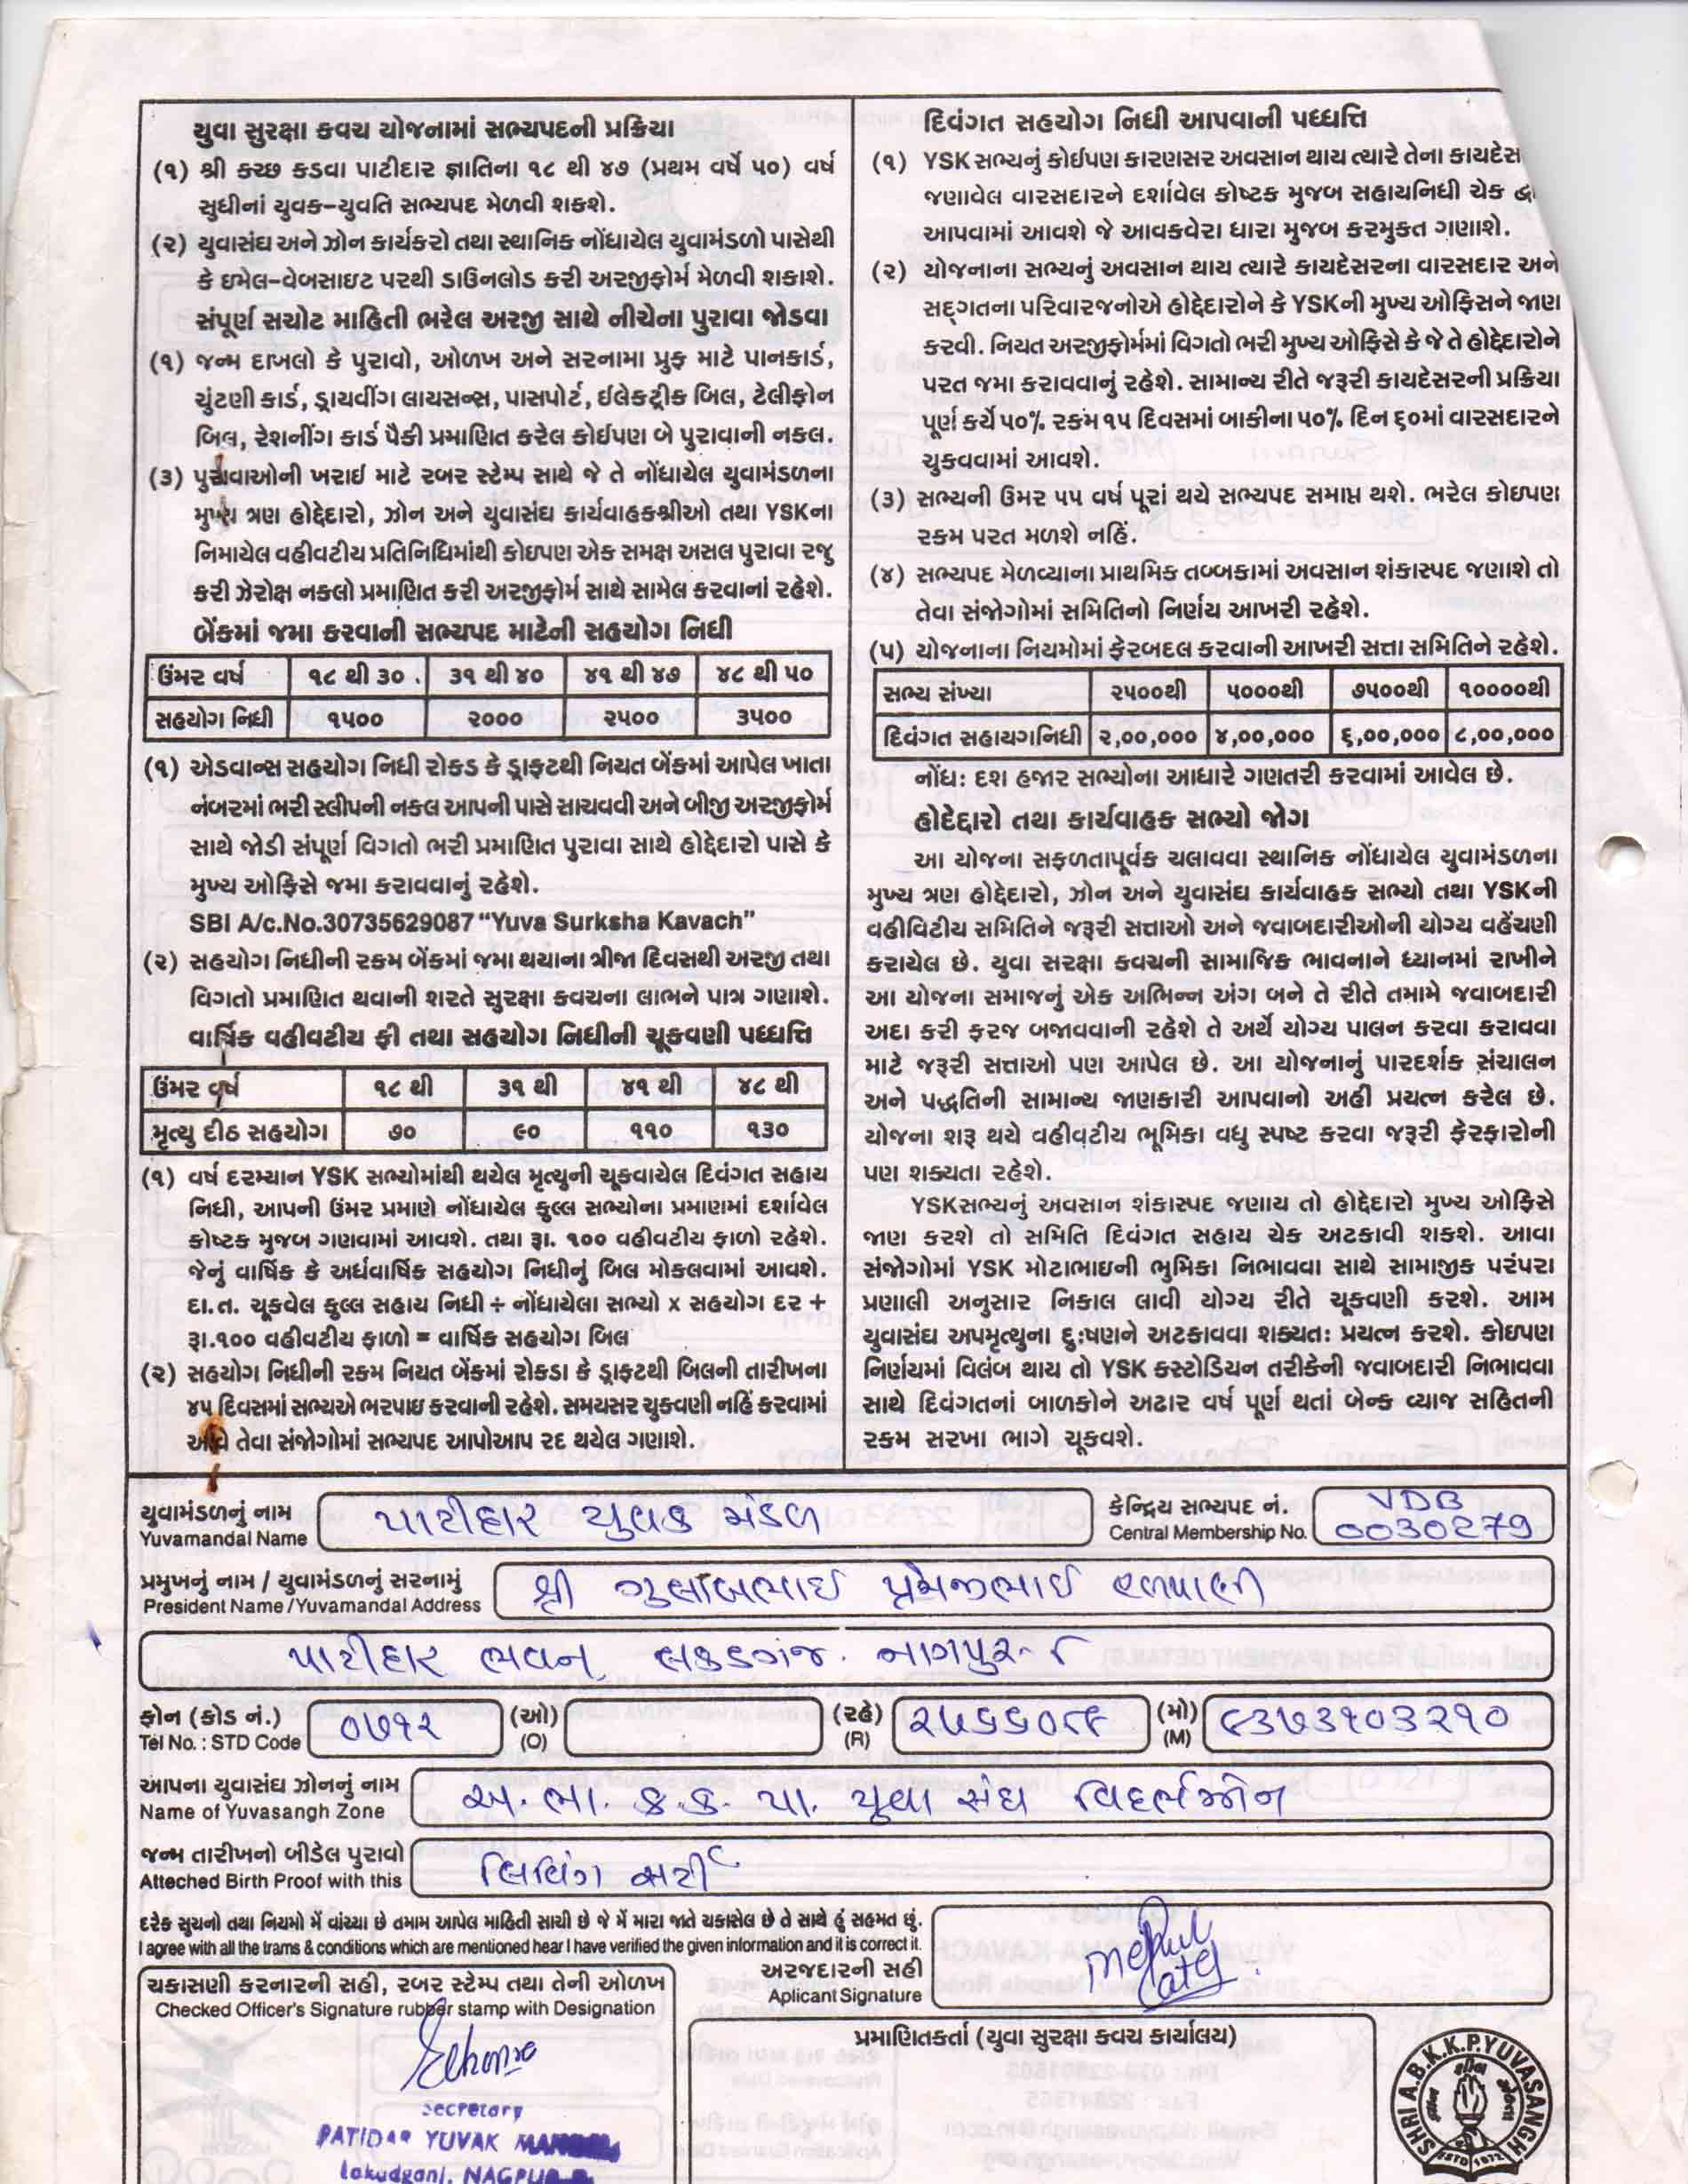 યુવા સુરક્ષા કવચ યોજનામાં સભ્યપદની પ્રક્રિયા
(૧) શ્રી કચ્છ કડવા પાટીદાર જ્ઞાતિના ૧૮ થી ૪૭ (પ્રથમ વર્ષે ૫૦) વર્ષ
સુધીનાં યુવક-યુવતિ સભ્યપદ મેળવી શકશે.
(૨) યુવાસંઘ અને ઝોન કાર્યકરો તથા સ્થાનિક નોંધાયેલ યુવામંડળો પાસેથી
કે ઇમેલ-વેબસાઇટ પરથી ડાઉનલોડ કરી અરજીફોર્મ મેળવી શકાશે.
સંપૂર્ણ સચોટ માહિતી ભરેલ અરજી સાથે નીચેના પુરાવા જોડવા
(૧) જન્મ દાખલો કે પુરાવો, ઓળખ અને સરનામા પ્રુફ માટે પાનકાર્ડ,
ચુંટણી કાર્ડ, ડ્રાયવીંગ લાયસન્સ, પાસપોર્ટ, ઈલેકટ્રીક બિલ, ટેલીફોન
બિલ, રેશનીંગ કાર્ડ પૈકી પ્રમાણિત કરેલ કોઈપણ બે પુરાવાની નકલ.
(૩) પુરાવાઓની ખરાઇ માટે રબર સ્ટેમ્પ સાથે જે તે નોંધાયેલ યુવામંડળના
મુખ્ય ત્રણ હોદ્દેદારો, ઝોન અને યુવાસંઘ કાર્યવાહકશ્રીઓ તથા YSKના
નિમાયેલ વહીવટીય પ્રતિનિધિમાંથી કોઇપણ એક સમક્ષ અસલ પુરાવા રજુ
કરી ઝેરોક્ષ નકલો પ્રમાણિત કરી અરજીફોર્મ સાથે સામેલ કરવાનાં રહેશે.
બેંકમાં જમા કરવાની સભ્યપદ માટેની સહયોગ નિધી
ઉંમર વર્ષ ૧૮ થી ૩૦ . ૩૧ થી ૪૦ ૪૧ થી ૪૭ ૪૮ થી ૫૦
સહયોગ નિધી ૧૫૦૦ ૨૦૦૦ ૨૫૦૦ ૩૫૦૦
(૧) એડવાન્સ સહયોગ નિધી રોકડ કે ડ્રાફ્ટથી નિયત બેંકમાં આપેલ ખાતા
નંબરમાં ભરી સ્લીપની નકલ આપની પાસે સાચવવી અને બીજી અરજીફોર્મ
સાથે જોડી સંપૂર્ણ વિગતો ભરી પ્રમાણિત પુરાવા સાથે હોદ્દેદારો પાસે કે
મુખ્ય ઓફિસે જમા કરાવવાનું રહેશે.
SBI A/c.No.30735629087 “Yuva Surksha Kavach”
(૨) સહયોગ નિધીની રકમ બેંકમાં જમા થયાના ત્રીજા દિવસથી અરજી તથા
વિગતો પ્રમાણિત થવાની શરતે સુરક્ષા કવચના લાભને પાત્ર ગણાશે.
વાર્ષિક વહીવટીય ફી તથા સહયોગ નિધીની ચૂકવણી પધ્ધતિ
ઉંમર વર્ષ ૧૮ થી ૩૧ થી ૪૧ થી ૪૮ થી
મૃત્યુ દીઠ સહયોગ ૭૦ ૯૦ ૧૧૦ ૧૩૦
(૧) વર્ષ દરમ્યાન YSK સભ્યોમાંથી થયેલ મૃત્યુની ચૂકવાયેલ દિવંગત સહાય
નિધી, આપની ઉંમર પ્રમાણે નોંધાયેલ કુલ્લ સભ્યોના પ્રમાણમાં દર્શાવેલ
કોષ્ટક મુજબ ગણવામાં આવશે. તથા રૂા. ૧૦૦ વહીવટીય ફાળો રહેશે.
જેનું વાર્ષિક કે અર્ધવાર્ષિક સહયોગ નિધીનું બિલ મોકલવામાં આવશે.
દા.ત. ચૂકવેલ કુલ્લ સહાય નિધી ÷ નોંધાયેલા સભ્યો x સહયોગ દર +
રૂા.૧૦૦ વહીવટીય ફાળો = વાર્ષિક સહયોગ બિલ
(૨) સહયોગ નિધીની રકમ નિયત બેંકમાં રોકડા કે ડ્રાફ્ટથી બિલની તારીખના
૪૫ દિવસમાં સભ્યએ ભરપાઇ કરવાની રહેશે. સમયસર ચુકવણી નહિં કરવામાં
આવે તેવા સંજોગોમાં સભ્યપદ આપોઆપ રદ થયેલ ગણાશે.
દિવંગત સહયોગ નિધી આપવાની પધ્ધતિ
(૧) YSK સભ્યનું કોઈપણ કારણસર અવસાન થાય ત્યારે તેના કાયદેસ
જણાવેલ વારસદારને દર્શાવેલ કોષ્ટક મુજબ સહાયનિધી ચેક દ્વા
આપવામાં આવશે જે આવકવેરા ધારા મુજબ કરમુક્ત ગણાશે.
(૨) યોજનાના સભ્યનું અવસાન થાય ત્યારે કાયદેસરના વારસદાર અને
સદ્ગતના પરિવારજનોએ હોદ્દેદારોને કે YSKની મુખ્ય ઓફિસને જાણ
કરવી. નિયત અરજીફોર્મમાં વિગતો ભરી મુખ્ય ઓફિસે કે જે તે હોદ્દેદારોને
પરત જમા કરાવવાનું રહેશે. સામાન્ય રીતે જરૂરી કાયદેસરની પ્રક્રિયા
પૂર્ણ કર્યે ૫૦% રકમ ૧૫ દિવસમાં બાકીના ૫૦% દિન ૬૦માં વારસદારને
ચુકવવામાં આવશે.
(૩) સભ્યની ઉંમર ૫૫ વર્ષ પૂરાં થયે સભ્યપદ સમાપ્ત થશે. ભરેલ કોઇપણ
રકમ પરત મળશે નહિં.
(૪) સભ્યપદ મેળવ્યાના પ્રાથમિક તબ્બકામાં અવસાન શંકાસ્પદ જણાશે તો
તેવા સંજોગોમાં સમિતિનો નિર્ણય આખરી રહેશે.
(૫) યોજનાના નિયમોમાં ફેરબદલ કરવાની આખરી સત્તા સમિતિને રહેશે.
સભ્ય સંખ્યા ૨૫૦૦થી ૫૦૦૦થી ૭૫૦૦થી ૧૦૦૦૦થી
દિવંગત સહાયગનિધી ૨,૦૦,૦૦૦ ૪,૦૦,૦૦૦ ૬,૦૦,૦૦૦ ૮,૦૦,૦૦૦
નોંધ: દશ હજાર સભ્યોના આધારે ગણતરી કરવામાં આવેલ છે.
હોદેદ્દારો તથા કાર્યવાહક સભ્યો જોગ
આ યોજના સફળતાપૂર્વક ચલાવવા સ્થાનિક નોંધાયેલ યુવામંડળના
મુખ્ય ત્રણ હોદ્દેદારો, ઝોન અને યુવાસંઘ કાર્યવાહક સભ્યો તથા YSKની
વહીવિટીય સમિતિને જરૂરી સત્તાઓ અને જવાબદારીઓની યોગ્ય વહેંચણી
કરાયેલ છે. યુવા સરક્ષા કવચની સામાજિક ભાવનાને ધ્યાનમાં રાખીને
આ યોજના સમાજનું એક અભિન્ન અંગ બને તે રીતે તમામે જવાબદારી
અદા કરી ફરજ બજાવવાની રહેશે તે અર્થે યોગ્ય પાલન કરવા કરાવવા
માટે જરૂરી સત્તાઓ પણ આપેલ છે. આ યોજનાનું પારદર્શક સંચાલન
અને પદ્ધતિની સામાન્ય જાણકારી આપવાનો અહી પ્રયત્ન કરેલ છે.
યોજના શરૂ થયે વહીવટીય ભૂમિકા વધુ સ્પષ્ટ કરવા જરૂરી ફેરફારોની
પણ શક્યતા રહેશે.
YSKસભ્યનું અવસાન શંકાસ્પદ જણાય તો હોદ્દેદારો મુખ્ય ઓફિસે
જાણ કરશે તો સમિતિ દિવંગત સહાય ચેક અટકાવી શકશે. આવા
સંજોગોમાં YSK મોટાભાઇની ભુમિકા નિભાવવા સાથે સામાજીક પરંપરા
પ્રણાલી અનુસાર નિકાલ લાવી યોગ્ય રીતે ચૂકવણી કરશે. આમ
યુવાસંઘ અપમૃત્યુના દુઃષણને અટકાવવા શક્યતઃ પ્રયત્ન કરશે. કોઇપણ
નિર્ણયમાં વિલંબ થાય તો YSK કસ્ટોડિયન તરીકેની જવાબદારી નિભાવવા
સાથે દિવંગતનાં બાળકોને અઢાર વર્ષ પૂર્ણ થતાં બેન્ક વ્યાજ સહિતની
રકમ સરખા ભાગે ચૂકવશે.
યુવામંડળનું નામ પાટીદાર યુવક મંડળ કેન્દ્રિય સભ્યપદ નં. VDB
Yuvamandal Name Central Membership No. 0030279
પ્રમુખનું નામ / યુવામંડળનું સરનામું શ્રી ગુલાબભાઈ પ્રેમજીભાઈ
President Name /Yuvamandal Address
પાટીદાર ભવન, લકડગંજ. નાગપુર-૮
ફોન (કોડ નં.) ૦૭૧૨ (ઓ) (રહે) ૨૫૬૬૦૮૯ (મો) ૯૩૭૩૧૦૩૨૧૦
Tel No. : STD Code (O) (R) (M)
આપના યુવાસંઘ ઝોનનું નામ અ. ભા. ક. ક. પા. યુવા સંઘ વિદર્ભઝોન
Name of Yuvasangh Zone
જન્મ તારીખનો બીડેલ પુરાવો લિવિંગ સર્ટી
Atteched Birth Proof with this
દરેક સુચનો તથા નિયમો મેં વાંચ્યા છે તમામ આપેલ માહિતી સાચી છે જે મેં મારા જાતે ચકાસેલ છે તે સાથે હું સહમત છું.
I agree with all the trams & conditions which are mentioned hear I have verified the given information and it is correct it.
અરજદારની સહી
Aplicant Signature
ચકાસણી કરનારની સહી, રબર સ્ટેમ્પ તથા તેની ઓળખ
Checked Officer's Signature rubber stamp with Designation
Secretary
PATIDAR YUVAK MANDAL
Lakudganj, NAGPUR
પ્રમાણિતકર્તા (યુવા સુરક્ષા કવચ કાર્યાલય)
SHRI A.B.K.K.P.YUVASANGH
ESTD 1972